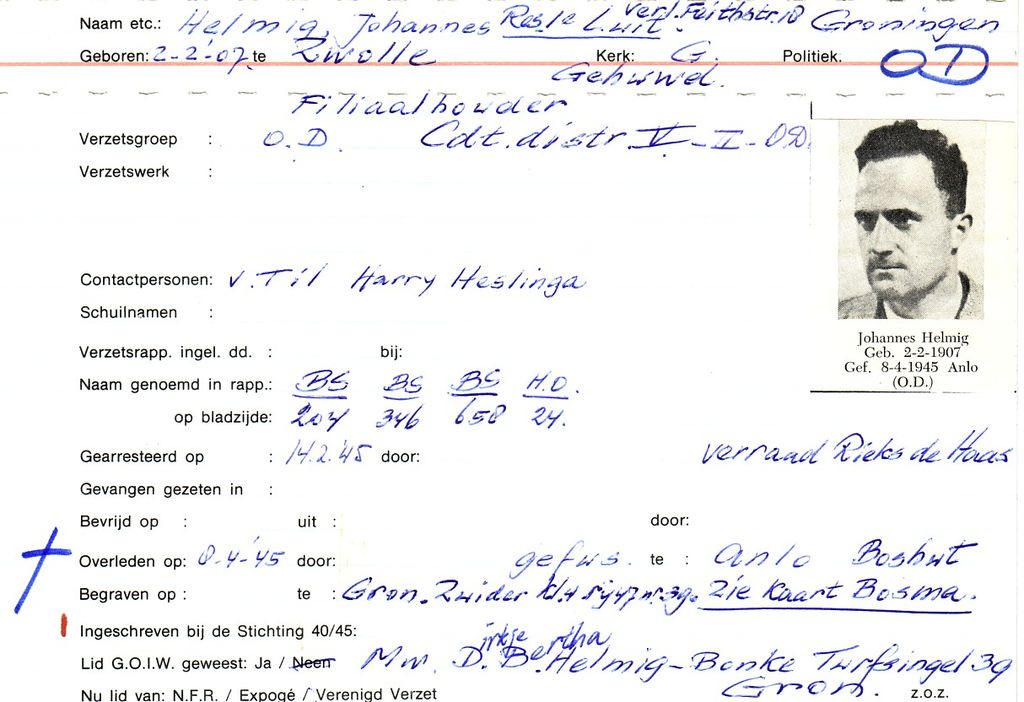 Naam etc.: Helmig, Johannes Rosle L.wit. Verl. Feithstr. 18 Groningen
Geboren: 2-2-'07 te Zwolle Kerk: G. Politiek. OD
Gehuwd.
Filiaalhouder
Verzetsgroep : O.D. Cdt. distr. V-II-OD.
Verzetswerk :
Contactpersonen: v. Til Harry Heslinga
Schuilnamen :
Johannes Helmig
Geb. 2-2-1907
Gef. 8-4-1945 Anlo
(O.D.)
Verzetsrapp. ingel. dd. : bij:
Naam genoemd in rapp.: BS BS BS H.O.
op bladzijde: 204 346 658 24.
Gearresteerd op : 14.2.'45 door: verraad Rieks de Haas
Gevangen gezeten in :
Bevrijd op : uit : door:
Overleden op: 8-4-'45 door: gefus. te : Anlo Boshut
Begraven op : te : Gron. Zuider kl.4 rij 47 nr. 39. Zie Kaart Bosma.
Ingeschreven bij de Stichting 40/45:
Lid G.O.I.W. geweest: Ja / Neen Mw. D. Bertha Helmig-Bonke Turfsingel 39
Nu lid van: N.F.R. / Expogé / Verenigd Verzet Gron. z.o.z.